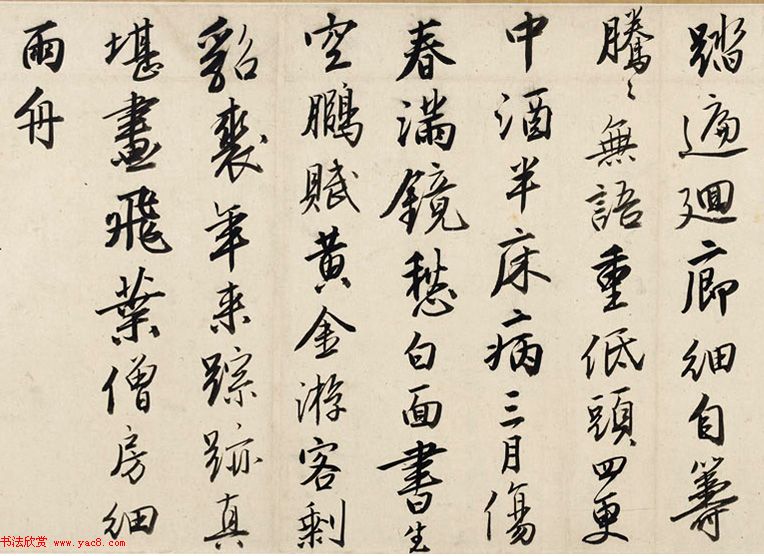 踏遍迴廊細自籌
騰〻無語重低頭四更
中酒半床病三月傷
春滿鏡愁白面書生
空鵩賦黃金游客剩
貂裘年来踪跡真
堪畫飛葉僧房細
雨舟
书法欣赏 www.yac8.com